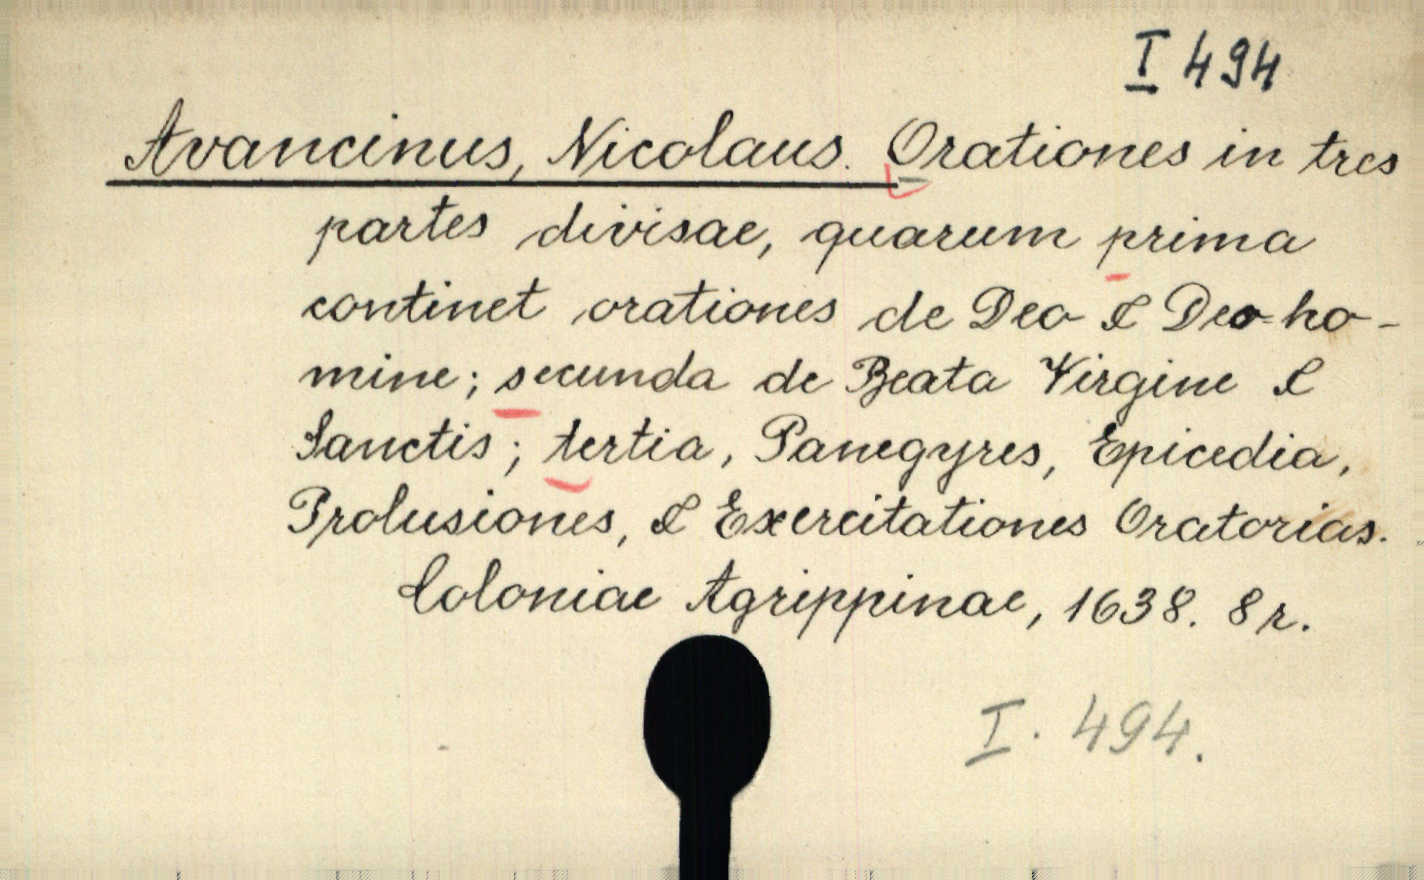 I 494
Avancinus, Nicolaus. Orationes in tres
partes divisae, quarum prima
continet orationes de Deo & Deo-ho-
mine; secunda de Beata Virgine &
Sanctis; tertia, Panegyres, Epicedia,
Prolusiones, & Exercitationes Oratorias.
Coloniae Agrippinae, 1638. 8r.
I. 494.